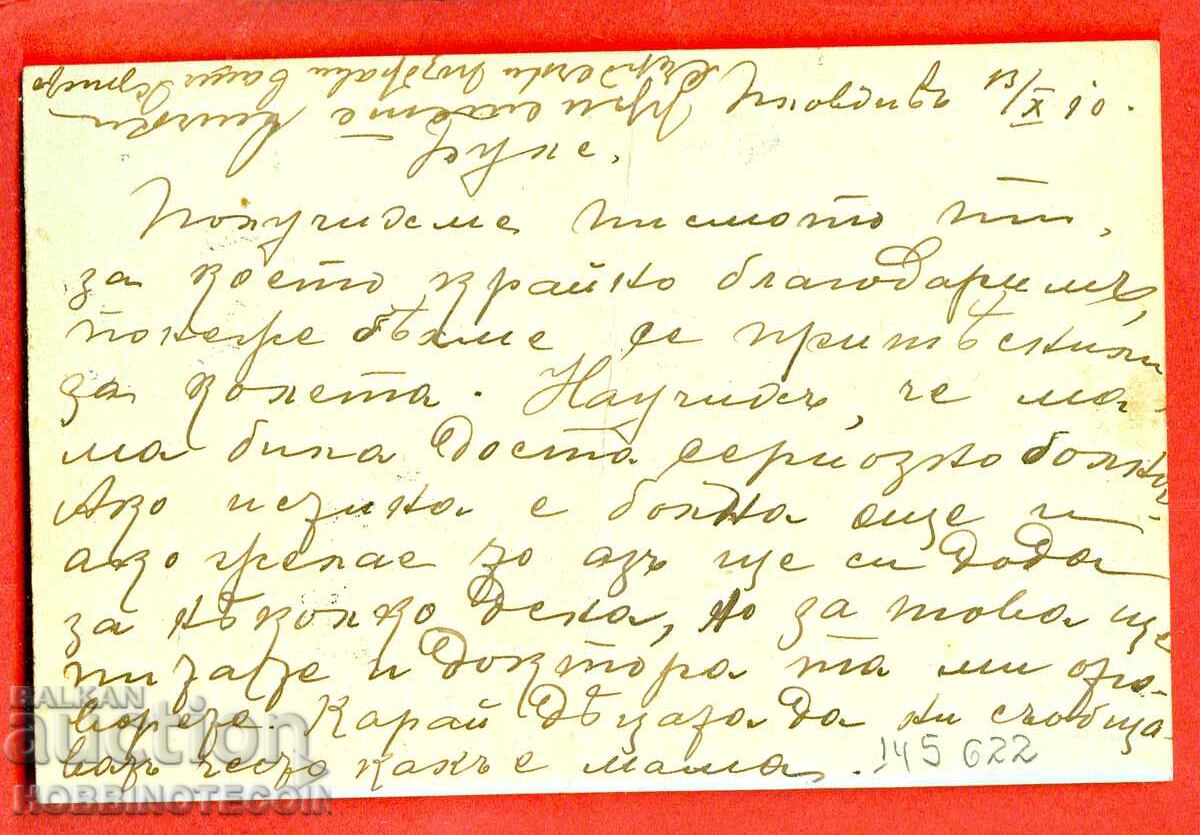 Пловдивъ 13/X 90.
Получихме писмото ти,
за което крайно благодаримъ,
понеже бѣхме се притѣснили
за колета. Научихъ, че ма-
ма била доста сериозно болна.
Ако истина е болна още и
ако трепае то азъ ще си дода
за нѣколко дена, но за това ще
питате и доктора та ми отго-
ворете. Карай дѣцата да ни съобща-
ватъ често какъ е мама.
145 622
BALKAN
auction
HOBBINOTECOIN